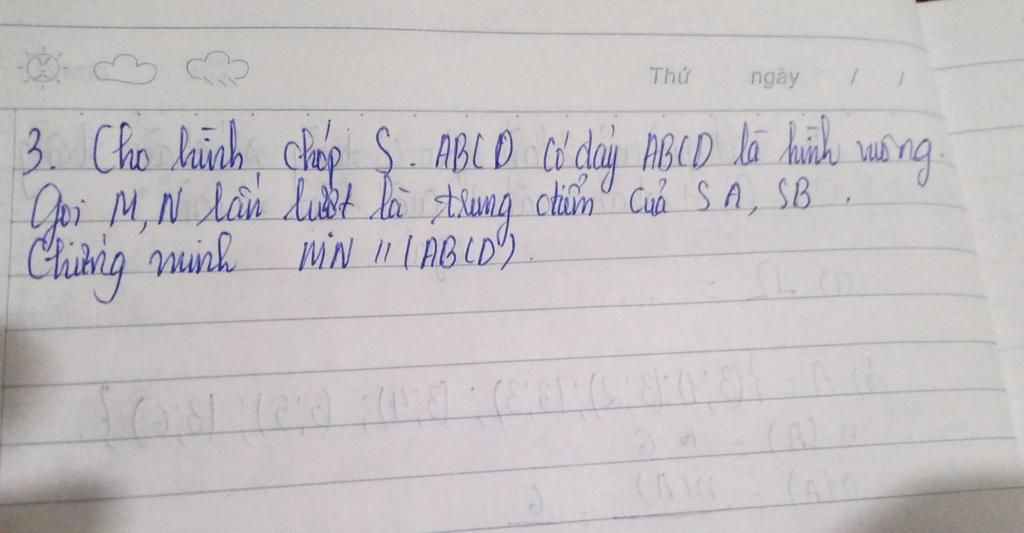 Thứ ngày / /
3. Cho hình chóp S.ABCD có đáy ABCD là hình vuông.
Gọi M, N lần lượt là trung điểm của SA, SB.
Chứng minh MN // (ABCD).